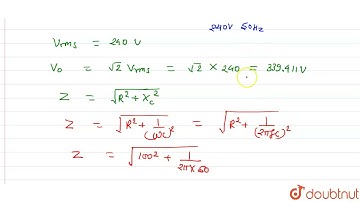 240V 50Hz
Vrms = 240 V
V₀ = √2 Vrms = √2 × 240 = 339.411V
Z = √(R² + Xc²)
Z = √(R² + 1/(ωC)²) = √(R² + 1/(2πfC)²)
Z = √(100² + 1/(2π×50
doubtnut